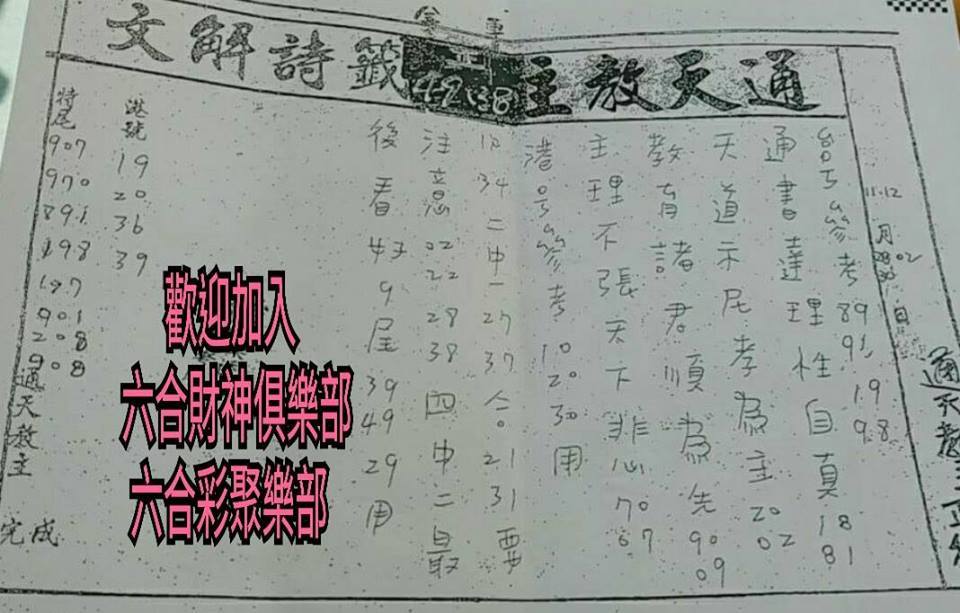 通天教主
籤詩解文
49 38
11.12
月
02
台号參考 89 91 19 98
通書達理性自真 18 81
天道示尼孝為主 20 02
教育諸君順為先 90 09
主理不張天下非心 70 07
港号參考 10 20 30 用
18 34 二中一 27 37 合 21 31 要
注意 02 22 28 38 四中二最
後看 4 9 尾 39 49 29 用
港號
19
20
36
39
特尾
907
970
891
198
187
901
208
908
通天教主 完成
歡迎加入
六合財神俱樂部
六合彩聚樂部